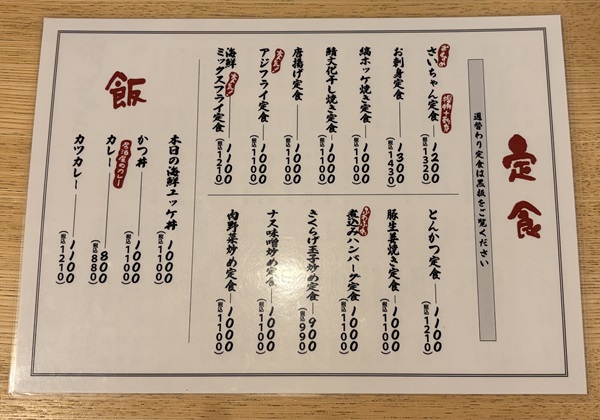 定食
週替わり定食は黒板をご覧ください
さいちゃん定食 1200
(税込1320)
お刺身定食 1300
(税込1430)
縞ホッケ焼き定食 1000
(税込1100)
鯖文化干し焼き定食 1000
(税込1100)
唐揚げ定食 1000
(税込1100)
アジフライ定食 1000
(税込1100)
海鮮ミックスフライ定食 1100
(税込1210)
とんかつ定食 1100
(税込1210)
豚生姜焼き定食 1000
(税込1100)
煮込みハンバーグ定食 1000
(税込1100)
きくらげ玉子炒め定食 900
(税込990)
ナス味噌炒め定食 1000
(税込1100)
肉野菜炒め定食 1000
(税込1100)
飯
本日の海鮮ユッケ丼 1000
(税込1100)
かつ丼 1000
(税込1100)
居酒屋のカレー
カレー 800
(税込880)
カツカレー 1100
(税込1210)